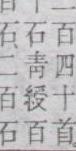 百四十首
石青綬百
石二百石